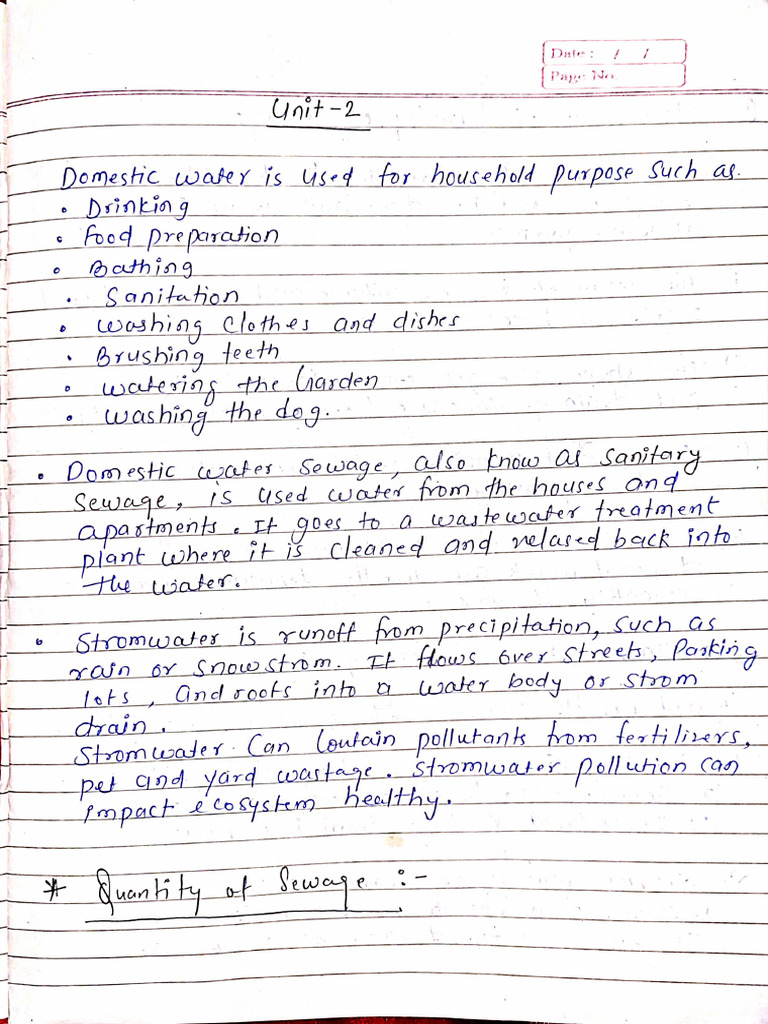 Date : / /
Page No.
Unit-2
Domestic water is used for household purpose such as.
• Drinking
• food preparation
• Bathing
• Sanitation
• washing clothes and dishes
• Brushing teeth
• watering the Garden
• washing the dog.
• Domestic water sewage, also know as sanitary
sewage, is used water from the houses and
apartments. It goes to a wastewater treatment
plant where it is cleaned and relased back into
the water.
• Stromwater is runoff from precipitation, such as
rain or snowstrom. It flows over streets, Parking
lots, and roofs into a water body or strom
drain.
Stromwater Can Contain pollutants from fertilizers,
pet and yard wastage. Stromwater pollution can
impact ecosystem healthy.
* Quantity of Sewage :-